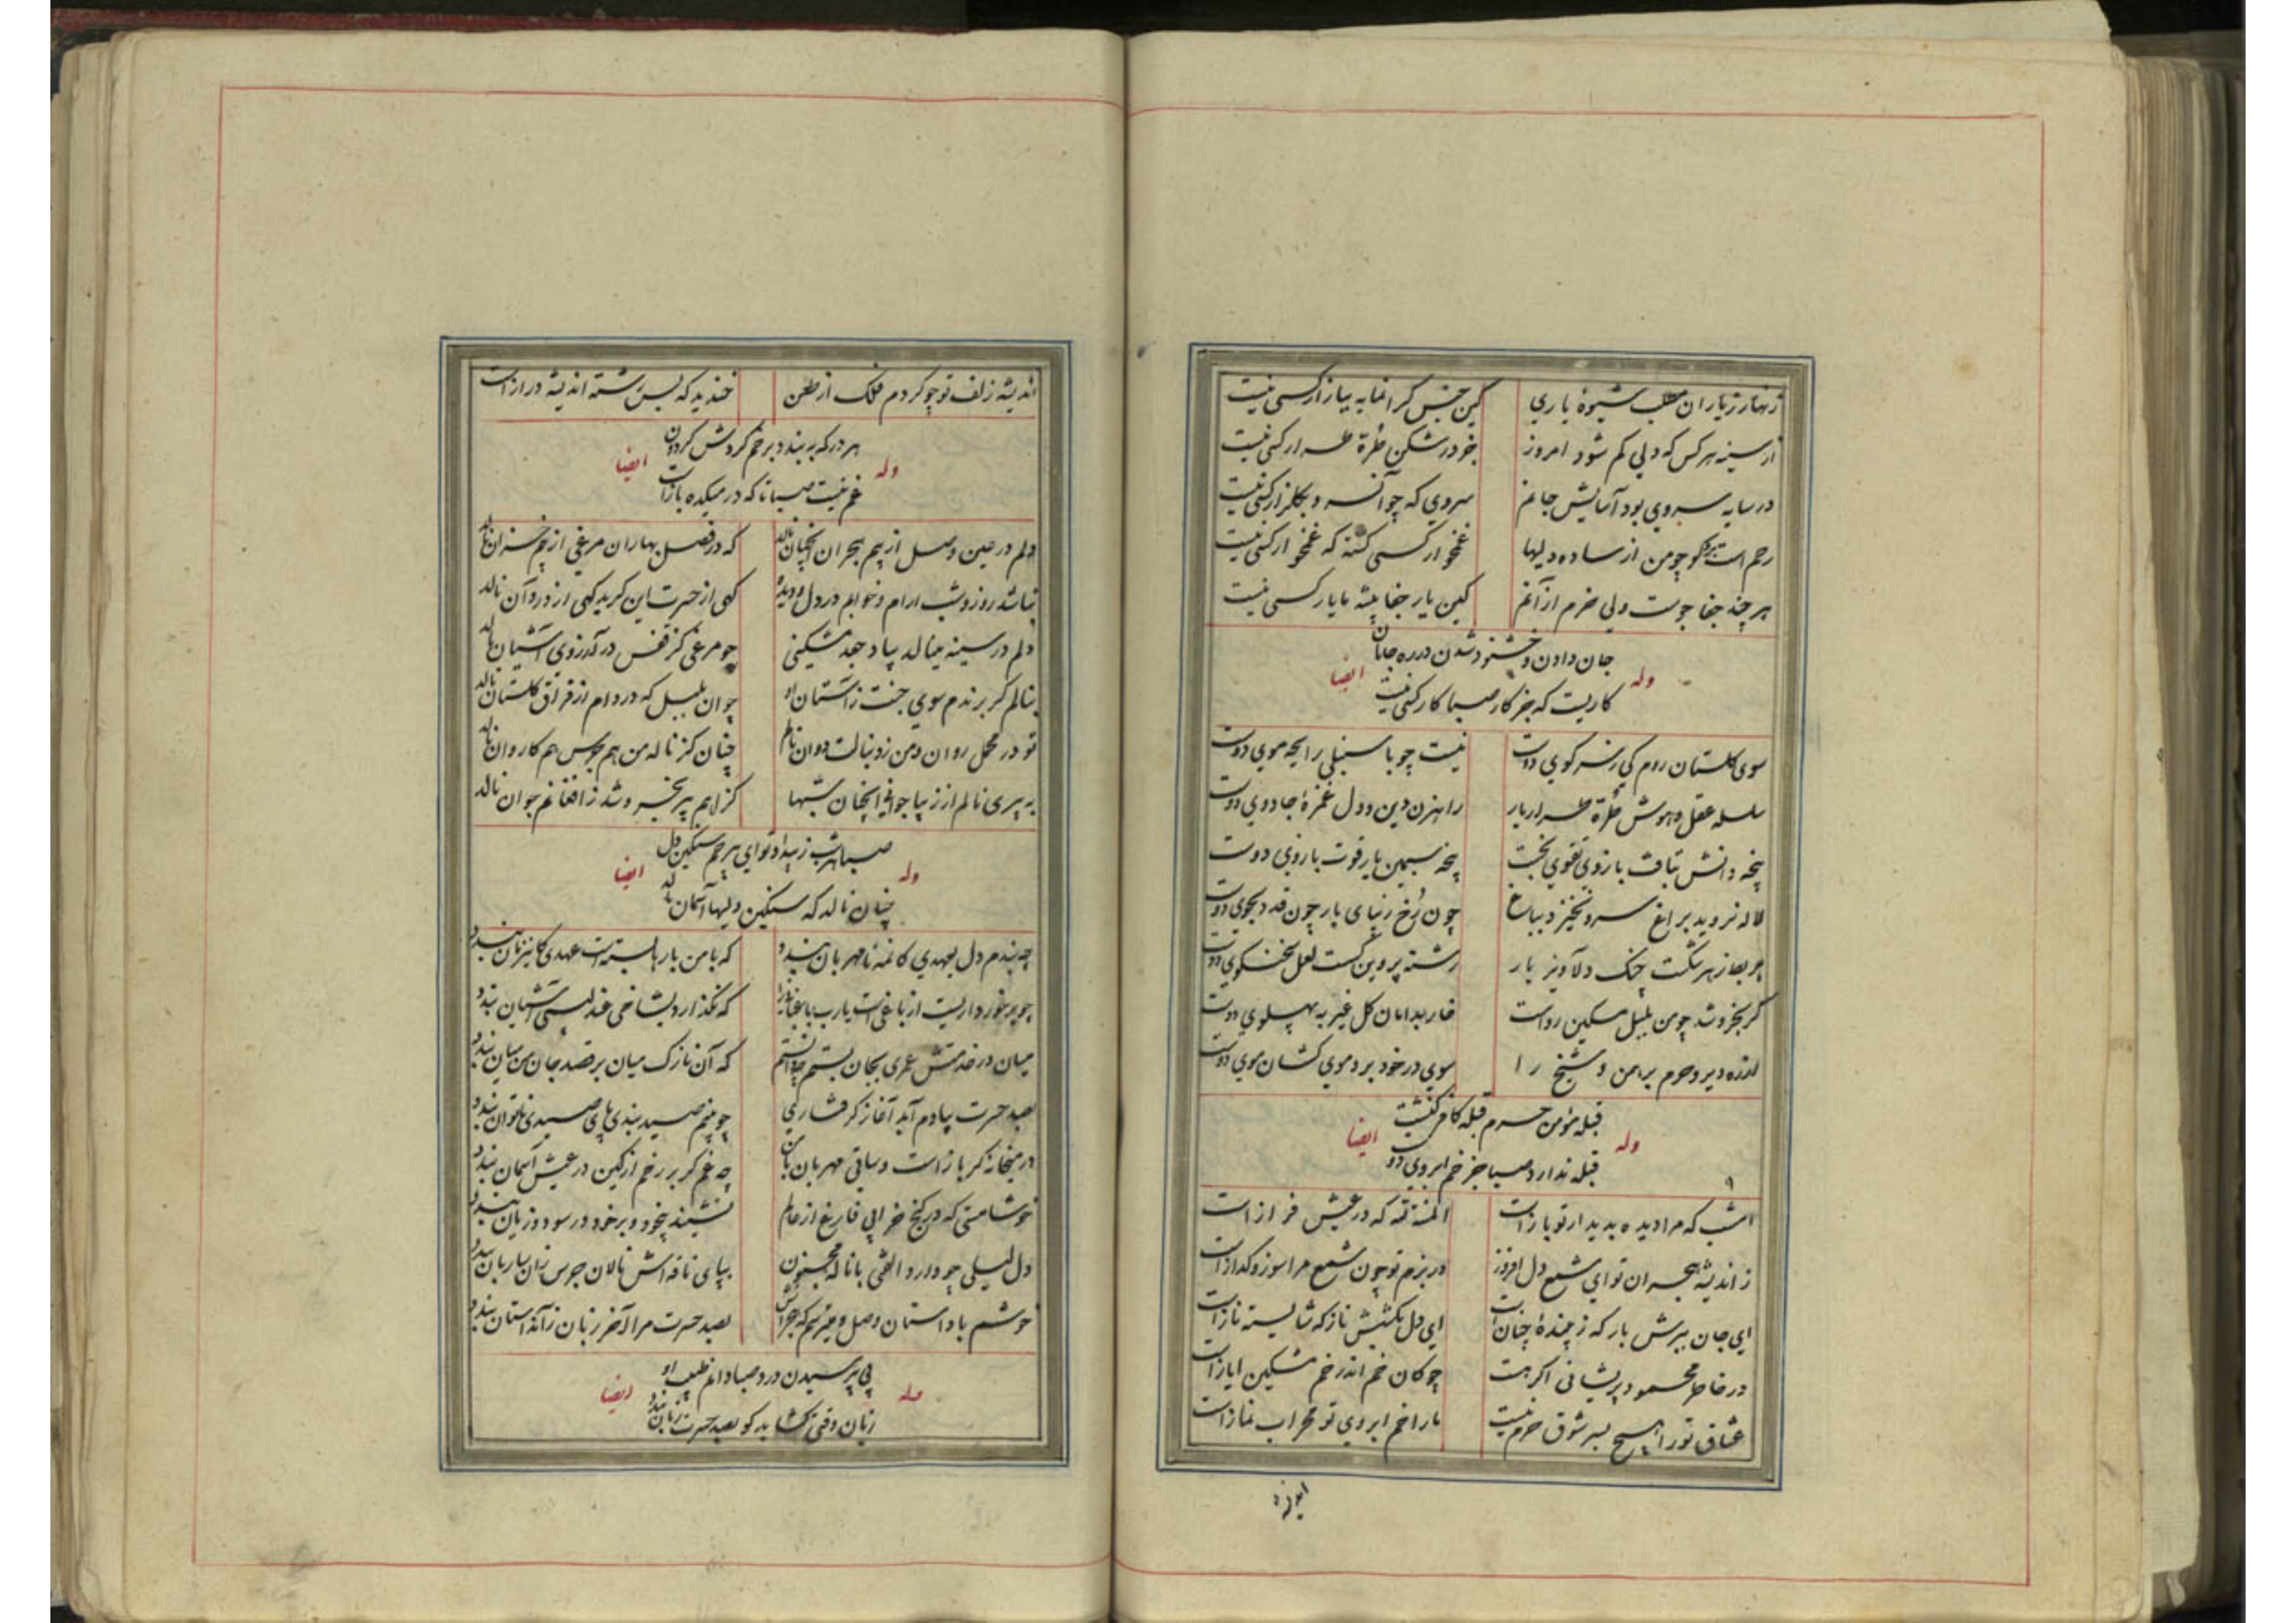 زنهار ز یاران مطلب شیوهٔ یاری کین جنس گرانمایه ببازار کسی نیست
از سینه هر کس که دلی کم شود امروز جز در شکن طرهٔ طرار کسی نیست
در سایه سروی بود آسایش جانم سروی که چو آن سرو بگلزار کسی نیست
رحم است بر کو چو من از ساده دلیها غمخوار کسی گشته که غمخوار کسی نیست
هر چند جفا جوست ولی خرم از آنم کین یار جفا پیشه ما یار کسی نیست
جان دادن و خشنود شدن در ره جانان
وله ایضا
کاریست که جز کار صبا کار کسی نیست
سوی گلستان روم کی ز سر کوی دوست نیست چو با سنبلی رایحه موی دوست
سلسله عقل و هوش طرهٔ طرار یار راهزن دین و دل غمزهٔ جادوی دوست
پنجه دانش بتافت بازوی تقوی بخست پنجه سیمین یار قوت بازوی دوست
لاله نروید براغ سرو نخیزد بباغ چون رخ زیبای یار چون قد دلجوی دوست
دلاویز یار رشته پروین گسست لعل سخنگوی دوست
گر بخروشد چو من بلبل مسکین رواست خار بدامان گل غیر به پهلوی دوست
از ره دیر و حرم برهمن و شیخ را سوی در خود برد موی کشان موی دوست
قبله مؤمن حرم قبله کافر کنشت
وله ایضا
قبله ندارد صبا جز خم ابروی دوست
امشب که مرا دیده بدیدار تو باز است المنة لله که در عیش فراز است
ز اندیشه هجران تو ای شمع دل افروز در بزم تو چون شمع مرا سوز و گداز است
ای جان ببرش بار که زیبندهٔ چنانست ای دل بکشش ناز که شایسته ناز است
در خاطر محمود پریشانی اگر هست چو کان خم اندر خم مشکین ایاز است
عشاق تو را هیچ بسر شوق حرم نیست ما را خم ابروی تو محراب نماز است
اندیشه زلف تو چو کردم فلک از طعن خندید که بس رشته اندیشه دراز است
هر در که ببندد برخم گردش گردون
وله ایضا
غم نیست صبا تا که در میکده باز است
دلم در عین وصل از بیم هجران آنچنان نالد که در فصل بهاران مرغی از بیم خزان نالد
نباشد روز و شب ارام و خوابم در دل و دیده گهی از حسرت این گرید گهی از درد آن نالد
دلم در سینه مینالد بیاد جعد مشکینی چو مرغی کز قفس در آرزوی آشیان نالد
بنالم گر برندم سوی جنت ز آستان او چو آن بلبل که در دام از فراق گلستان نالد
تو در محمل روان و من ز دنبالت دوان نالم چنان کز ناله من هم جرس هم کاروان نالد
به پیری نالم از زیبا جوانی آنچنان شبها کز آهم پیر بخروشد ز افغانم جوان نالد
صبا هر شب ز بیداد تو ای بیرحم سنگین دل
وله ایضا
چنان نالد که سنگین دلیها آسمان نالد
چه بندم دل بعهدی کان مه نامهربان بندد که با من بارها بسته است عهدی کاین زمان بندد
چه برخورداریست از باغی است یارب باغبانان را که نگذارد بشاخی عندلیبی آشیان بندد
میان در خدمتش عمری بجان بستم چه دانستم که آن نازک میان بر قصد جان من میان بندد
بصد حسرت بیادم آید آغاز گرفتاری چو بینم صید بندی پای صیدی ناتوان بندد
در میخانه گر باز است و ساقی مهربان با من چه غم گر بر رخم از کین در عیش آسمان بندد
خوشا مستی که در کنج خرابی فارغ از عالم نشیند بیخود و بر خود در سود و زیان بندد
دل لیلی چو دارد الفتی با ناله مجنون بپای ناقه اش نالان جرس زان ساربان بندد
خوشم با داستان وصل و میترسم که هجرانش بصد حسرت مرا آخر زبان زآن داستان بندد
پی پرسیدن درد صبا دانم طبیب او
وله ایضا
زبان وقتی گشاید کو بصد حسرت زبان بندد